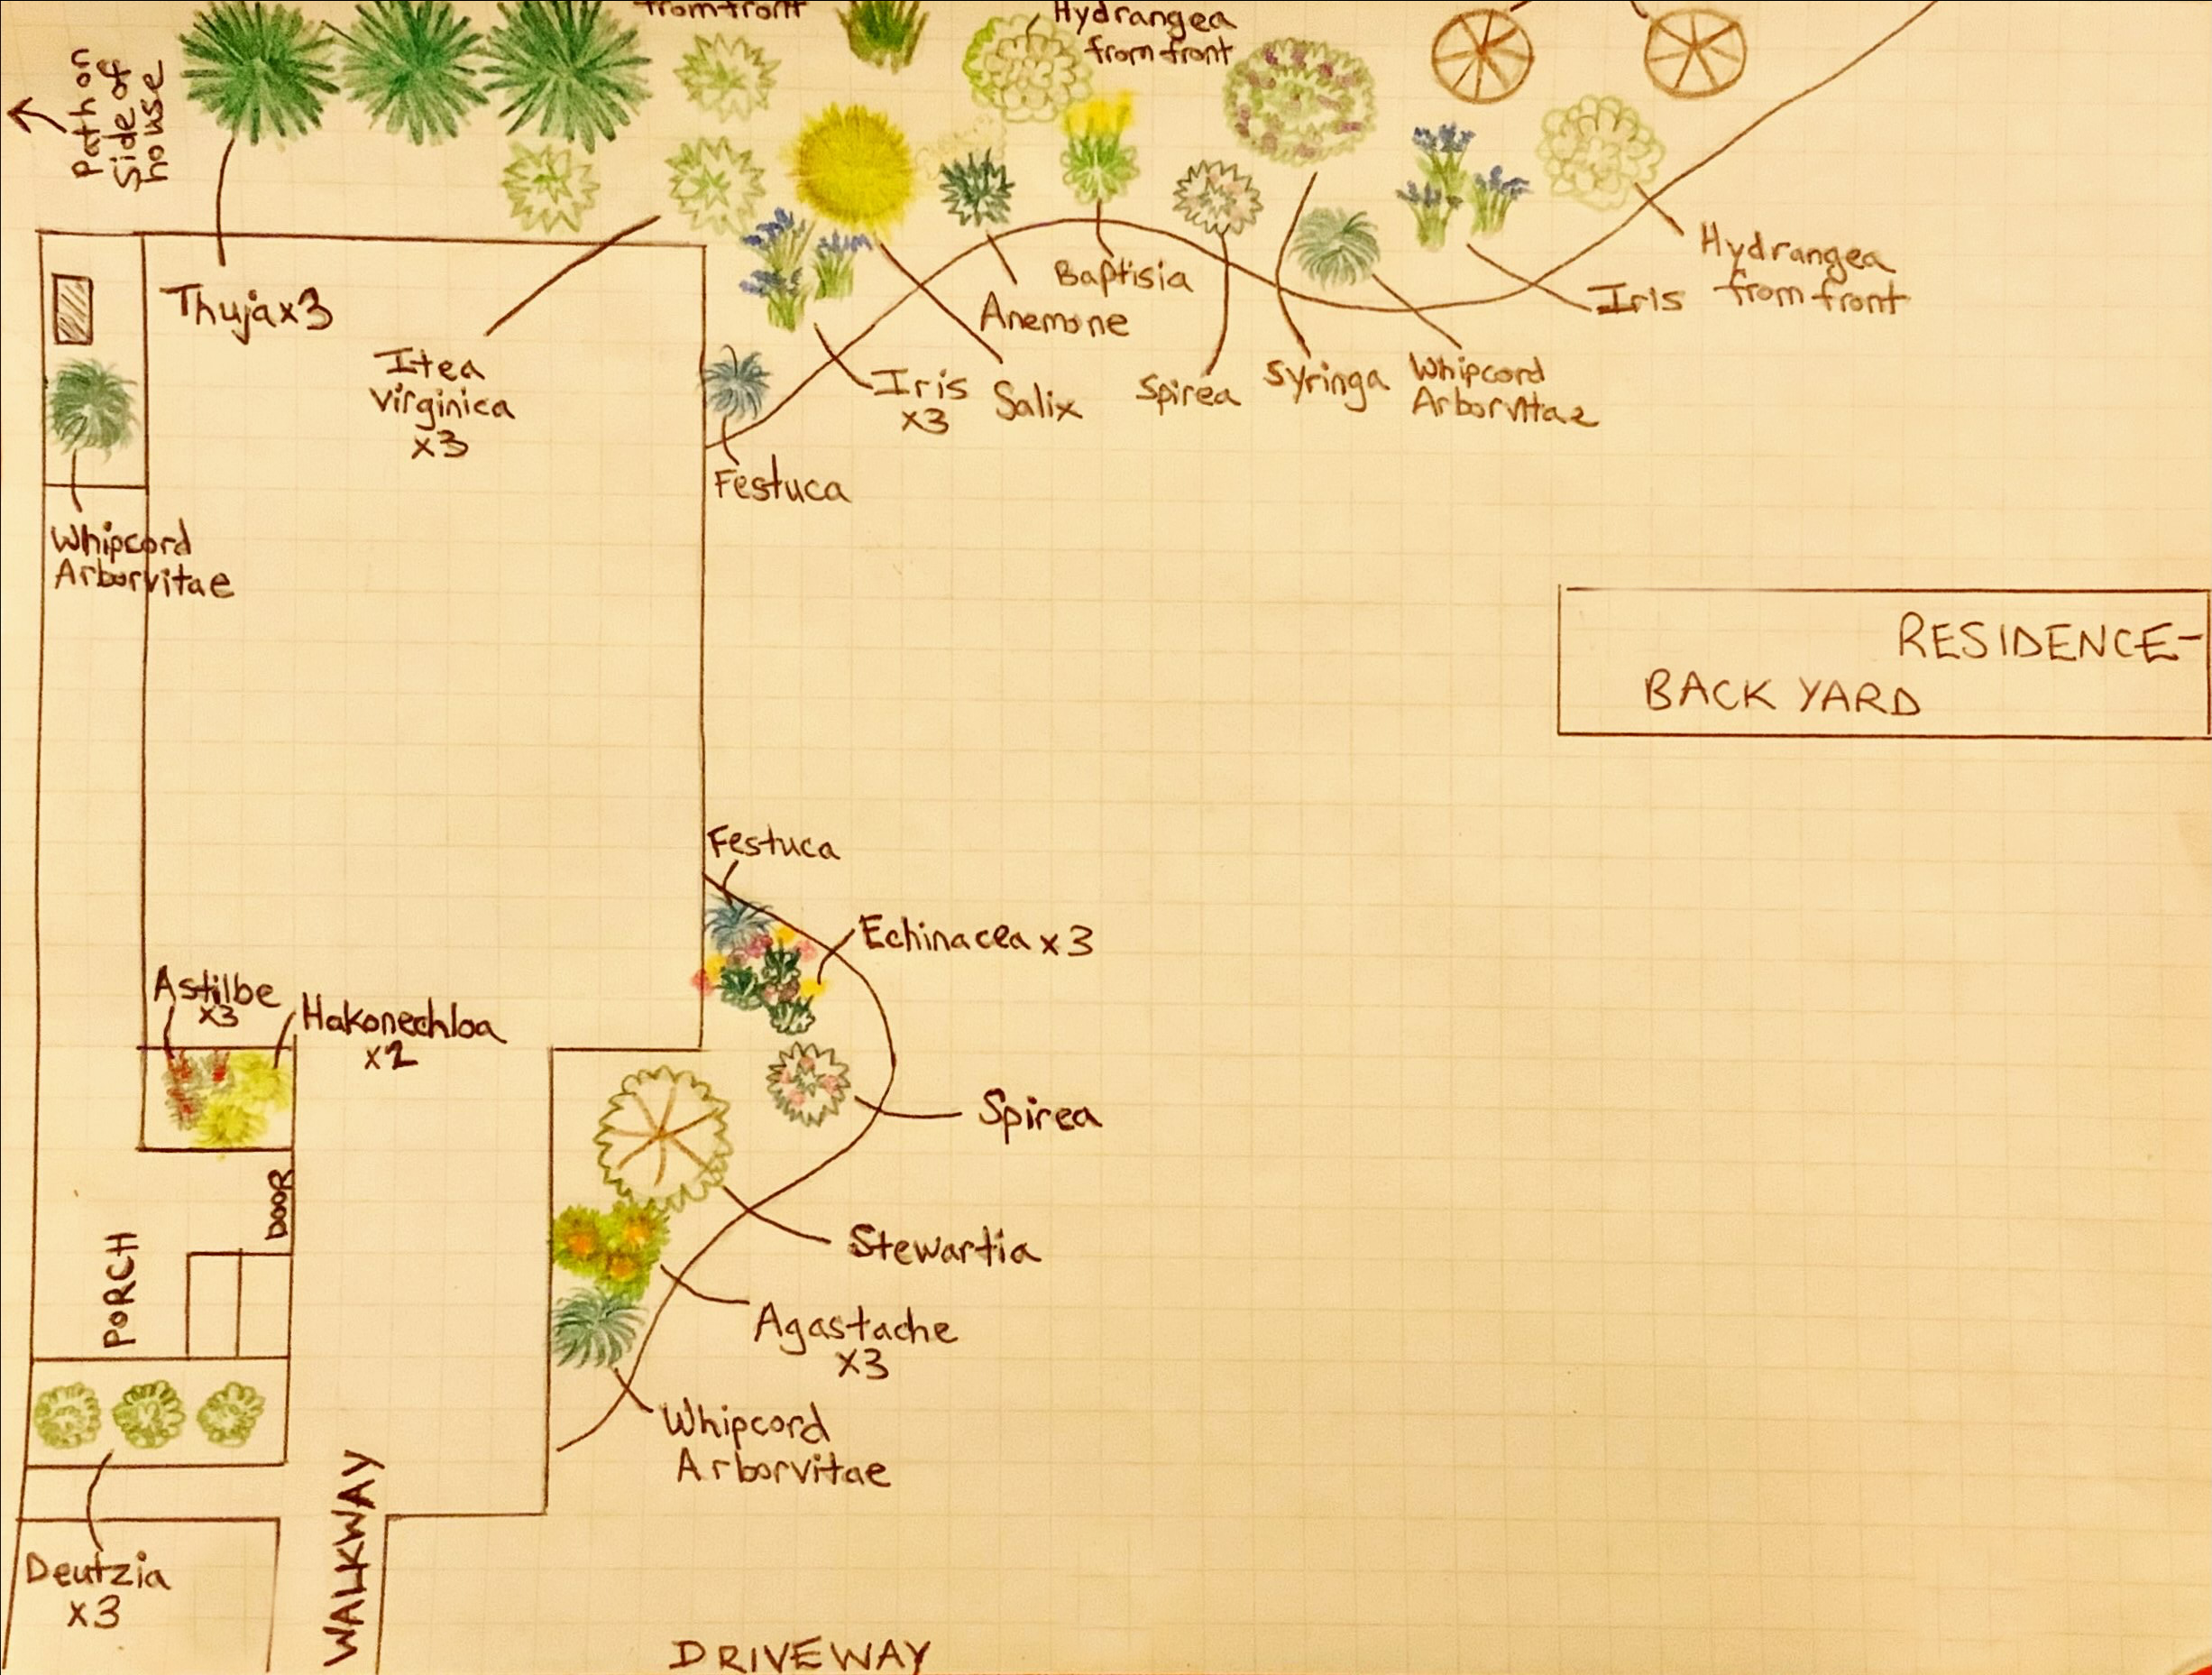 from front
Hydrangea
from front
Path on
Side of
house
Thuja x3
Itea
Virginica
x3
Hydrangea
from front
Iris
Baptisia
Anemone
Iris
x3
Salix
Spirea
Syringa
Whipcord
Arborvitae
Festuca
Whipcord
Arborvitae
RESIDENCE-
BACK YARD
Festuca
Echinacea x3
Astilbe
x3
Hakonechloa
x2
Spirea
DOOR
PORCH
Stewartia
Agastache
x3
Whipcord
Arborvitae
WALKWAY
Deutzia
x3
DRIVEWAY